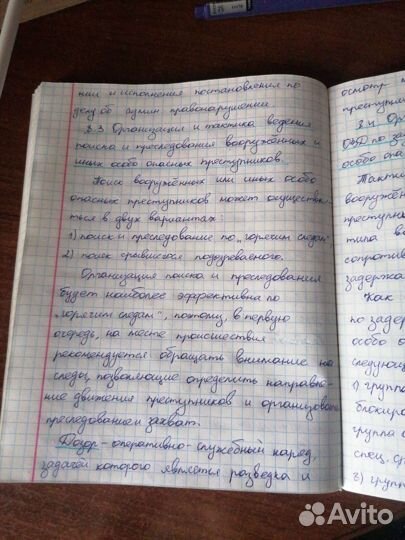 нии и исполнения постановления по
делу об админ правонарушении.
8.3 Организация и тактика ведения
поиска и преследования вооружённых и
иных особо опасных преступников.
Поиск вооружённых или иных особо
опасных преступников может осуществлять-
ться в двух вариантах:
1) поиск и преследование по „горячим следам"
2) поиск скрывшегося подозреваемого.
Организация поиска и преследования
будет наиболее эффективна по
„горячим следам", поэтому, в первую
очередь, на месте происшествия
рекомендуется обращать внимание на
следы, позволяющие определить направле-
ние движения преступников и организовать
преследование и захват.
Дозор - оперативно-служебный наряд,
задачей которого является разведка и
осмотр
преступни
8.4 Орг
особо опа
Тактик
вооружён
преступн
типа
сопротив
задержа
Как
по задер
особо о
следующ
1) группа
блокиро
группа
спец. ср
2) групп
Avito